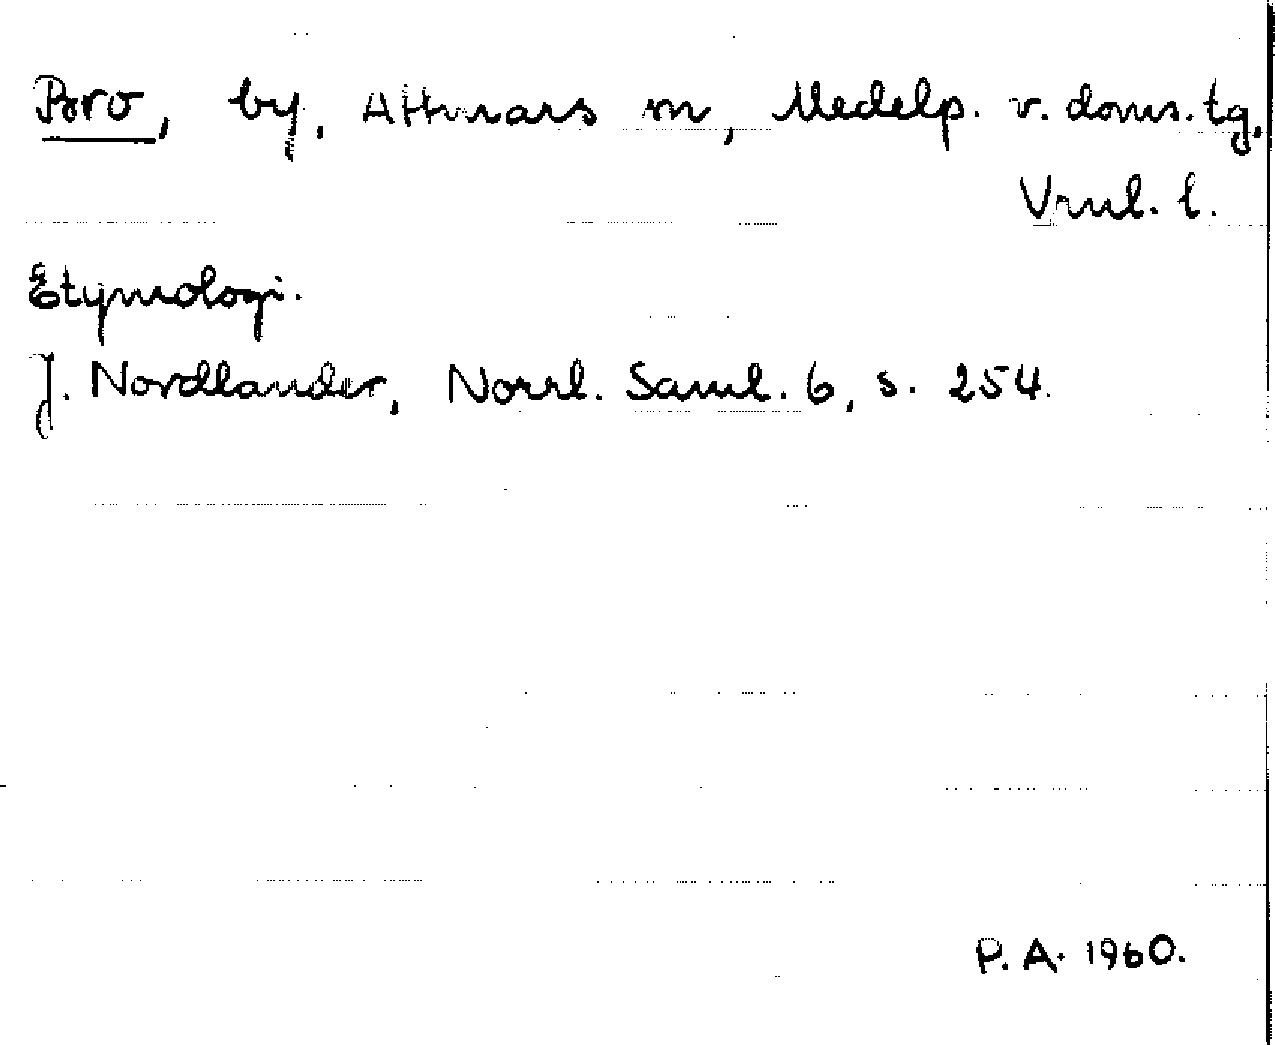 Bro, by, Attmars sn, Medelp. v. doms. tg,
Vnrl. l.
Etymologi.
J. Nordlander, Norrl. Saml. 6, s. 254.
P. A. 1960.